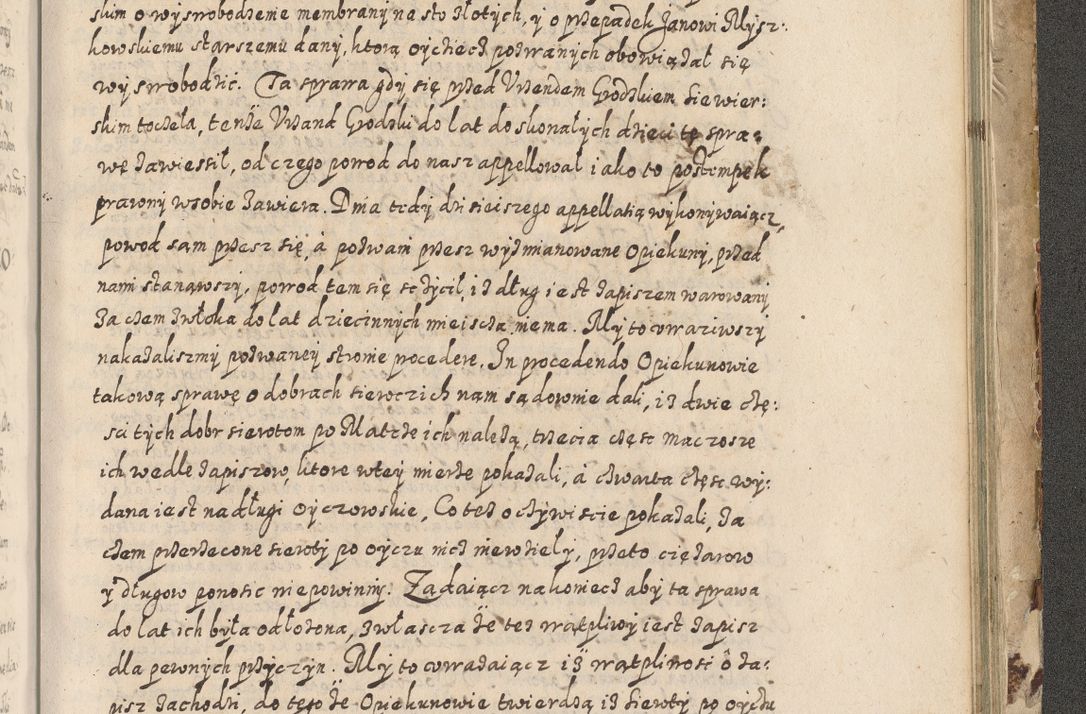 skim o wyswobodzenie membrany na sto złotych, y o przepadek Janowi Mysz:
kowskiemu starszemu dany, ktorą oycziecz pozwanych obowiązał się
wyswobodzić. Ta sprawa gdy się przed Vrzendem Grodzkiem siewier:
skim toczeła, tenże Vrzand Grodzki do lat doskonałych dzieci tę spra:
wę zawiessił, od czego powod do nasz appellował iako to postempek
prawny wsobie zawiera. Dnia tedy dzisieiszego appellatią wykonywaiącz,
powod sam przesz się, á pozwani przesz wyżmianowane Opiekuny, przed
nami stanąwszy, powod tem się sczycił, iż dług iest zapiszem warowany
Za czem zwłoka do lat dziecinnych mieiscza niema. My to vwaziwszy
nakazaliszmy pozwaney stronie procedere. In procedendo Opiekunowie
takową sprawę o dobrach sieroczich nam sądownie dali, iż dwie czę:
sci tych dobr sierotom po Matcze ich należą, trzecia częsc maczosze
ich wedle zapiszow, ktore wtey mierze pokazali, á czwarta częsc wy:
dana iest na długi oyczowskie, Co tez oczywiscie pokazali, Za
czem przerzeczone sieroty po oyczu nicz niewzieły, przeto ciężarow
y długow ponosic niepowinny. Ządaiącz nakoniecz aby ta sprawa
do lat ich była odłożona, zwłascza że tez wątpliwy iest zapisz
dla pewnych przyczyn. My to vwazaiącz iż wątpliwosc o za:
pisz zachodzi, do tego że Opiekunowie twierdzą iż sieroty po oyczu